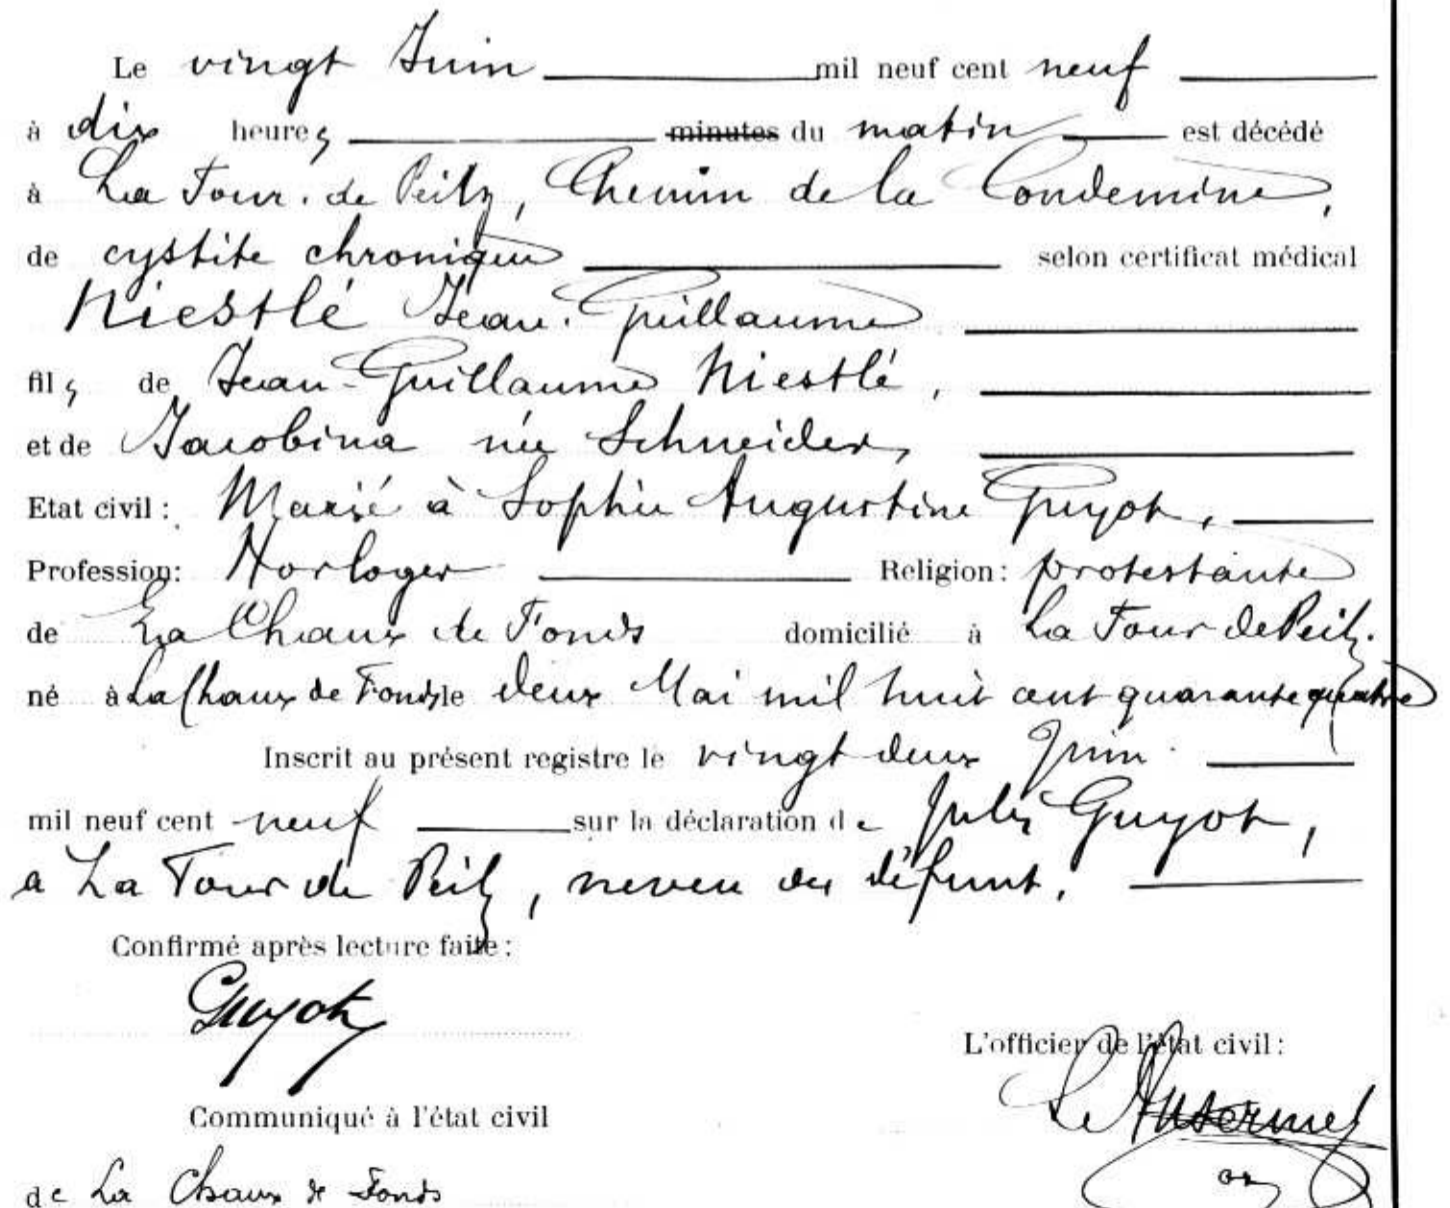 Le vingt Juin mil neuf cent neuf
à dix heures minutes du matin est décédé
à La Tour-de-Peilz, Chemin de la Condemine,
de cystite chronique selon certificat médical
Niestlé Jean-Guillaume
fils de Jean-Guillaume Niestlé,
et de Jacobina née Schneider,
Etat civil: Marié à Sophie Augustine Guyot,
Profession: Horloger Religion: protestante
de La Chaux de Fonds domicilié à La Tour de Peilz.
né à La Chaux de Fonds le deux Mai mil huit cent quarante quatre
Inscrit au présent registre le vingt deux Juin
mil neuf cent neuf sur la déclaration de Jules Guyot,
a La Tour de Peilz, neveu du défunt.
Confirmé après lecture faite:
Guyot
L'officier de l'état civil:
Communiqué à l'état civil
de La Chaux de Fonds